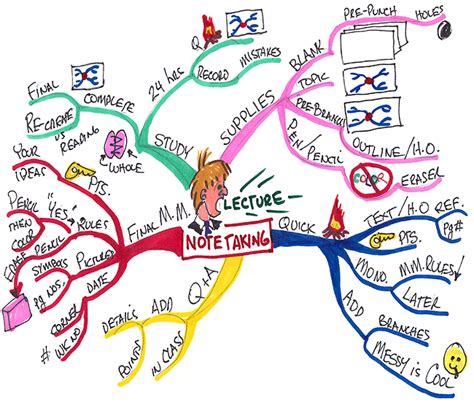 LECTURE
NOTE TAKING
SUPPLIES
BLANK
PRE-PUNCH
HOLES
TOPIC
PRE-BRANCH
OUTLINE/H.O.
PEN/PENCIL
COLOR
ERASER
QUICK
TEXT/H.O REF.
Pg#
PTS.
MONO
M.M. RULES
LATER
ADD
BRANCHES
MESSY is COOL
Q+A
ADD
IN CLASS
DETAILS
POINTS
FINAL M.M.
PTS.
YOUR
IDEAS
RULES
"YES"
PENCIL
THEN
COLOR
PENCIL
ERASE
PICTURES
SYMBOLS
PG NOS.
DATE
CORNER
# WK NO
STUDY
24 hrs
Q
RECORD
MISTAKES
COMPLETE
FINAL
RECREATE
VS READING
WHOLE